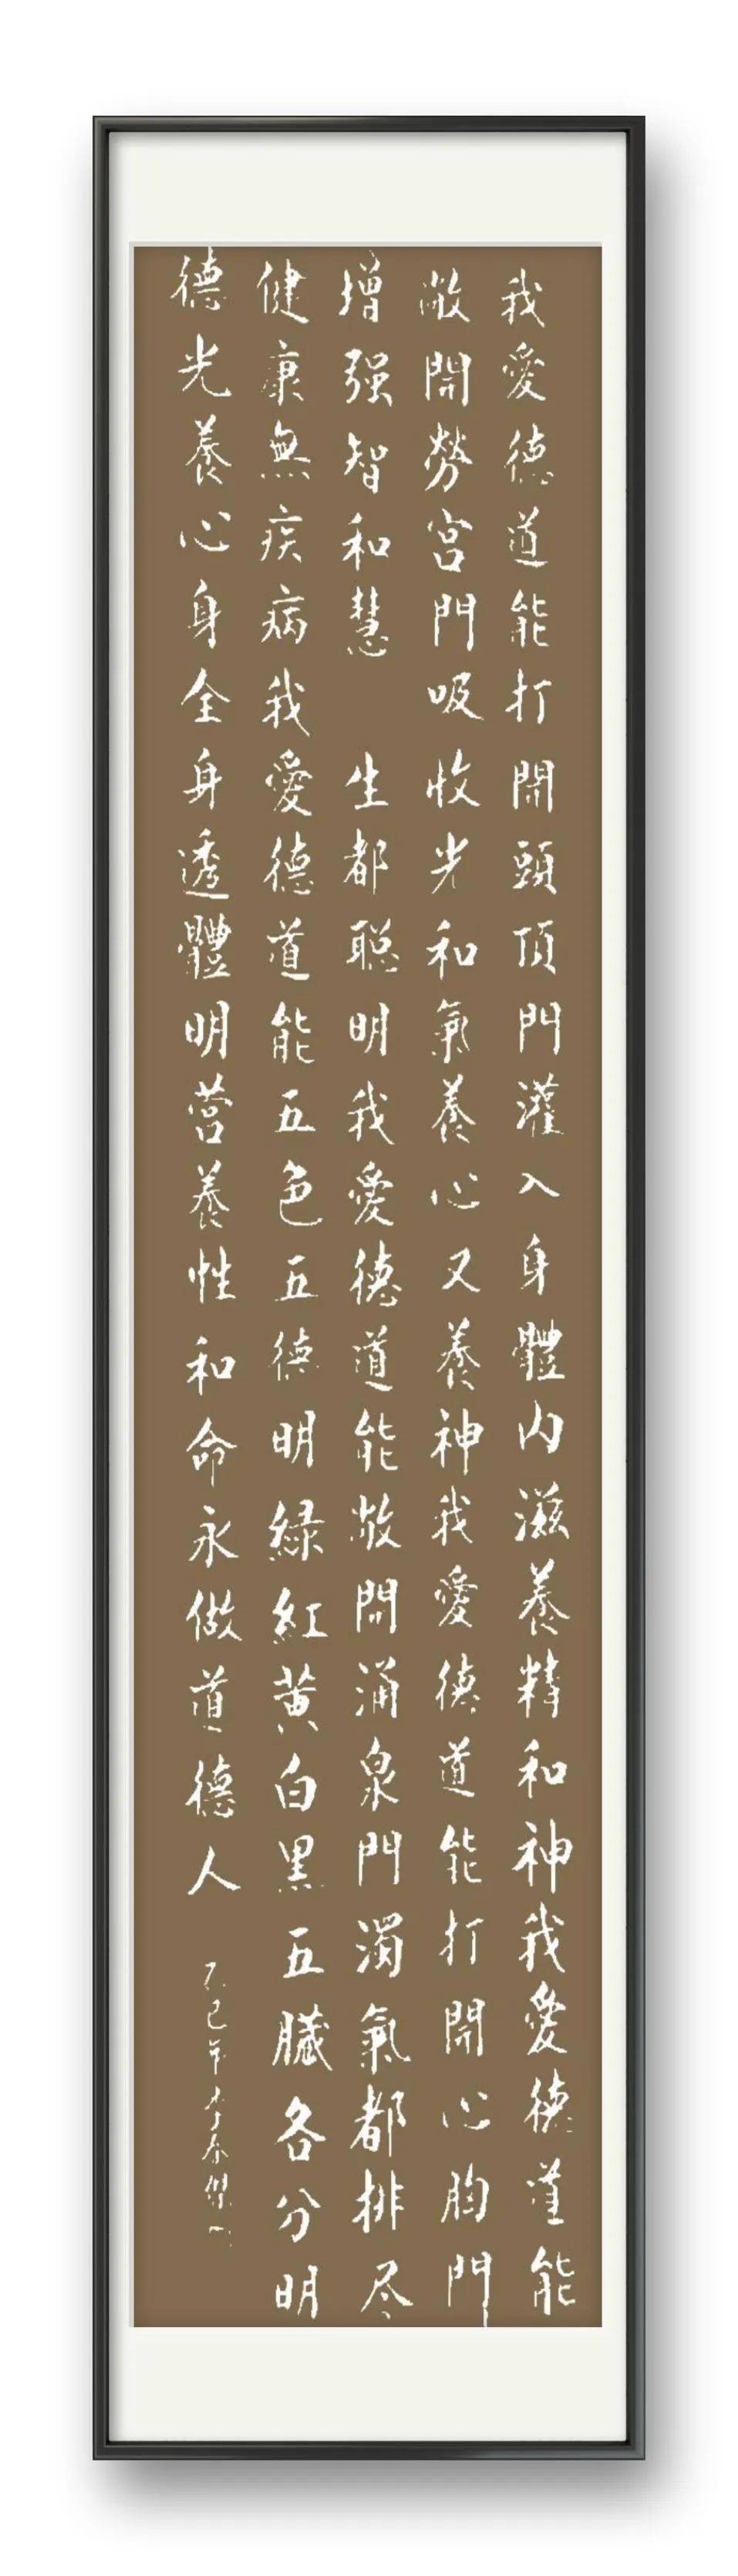 我愛德道能打開頭頂門灌入身體内滋養精和神我愛德道能
敞開勞宮門吸收光和氣養心又養神我愛德道能打開心胸門
增强智和慧 生都聪明我愛德道能敞開涌泉門濁氣都排尽
健康無疾病我愛德道能五色五德明绿紅黄白黑五臟各分明
德光養心身全身透體明营養性和命永做道德人
乙巳年李